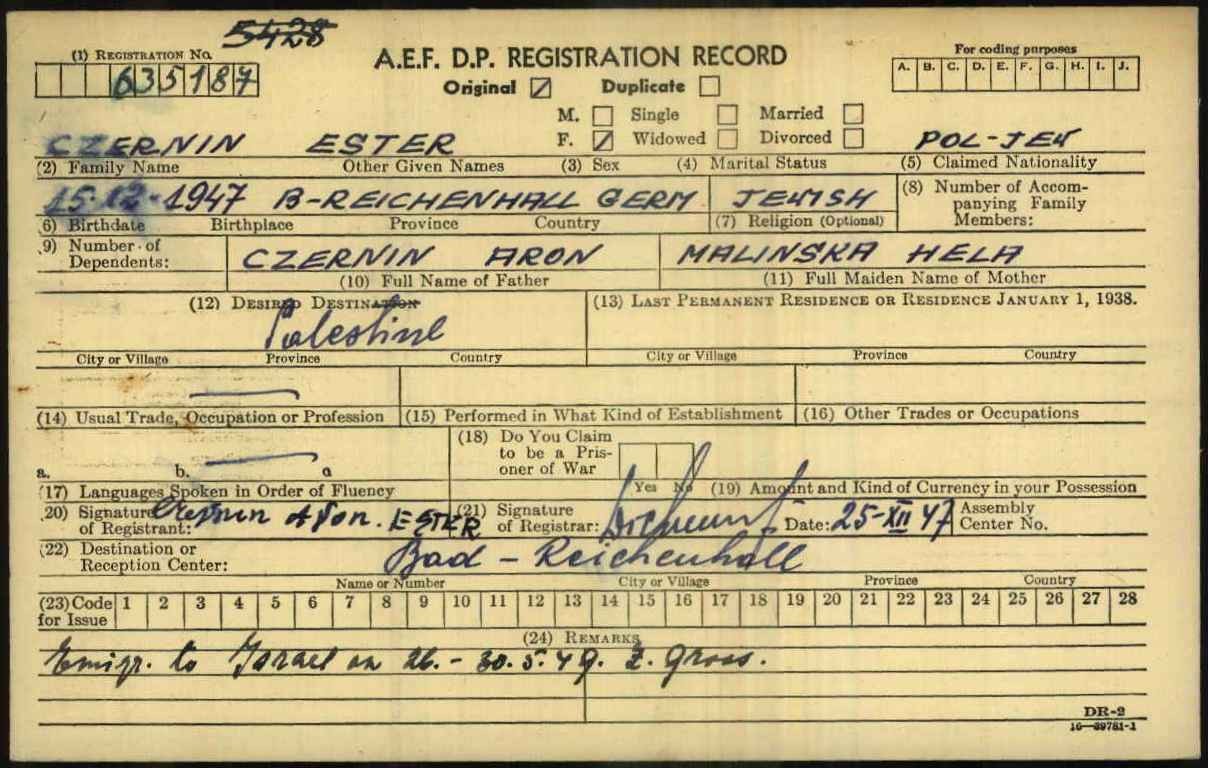 5428
(1) REGISTRATION No.
635187
A.E.F. D.P. REGISTRATION RECORD
Original Duplicate
For coding purposes
A. B. C. D. E. F. G. H. I. J.
M. Single Married
F. Widowed Divorced
CZERNIN ESTER POL-JEW
(2) Family Name Other Given Names (3) Sex (4) Marital Status (5) Claimed Nationality
15.12.1947 B-REICHENHALL GERM JEWISH
(8) Number of Accompanying Family Members:
6) Birthdate Birthplace Province Country (7) Religion (Optional)
9) Number of Dependents:
CZERNIN ARON MALINSKA HELA
(10) Full Name of Father (11) Full Maiden Name of Mother
(12) DESIRED DESTINATION (13) LAST PERMANENT RESIDENCE OR RESIDENCE JANUARY 1, 1938.
Palestine
City or Village Province Country City or Village Province Country
(14) Usual Trade, Occupation or Profession (15) Performed in What Kind of Establishment (16) Other Trades or Occupations
(18) Do You Claim to be a Prisoner of War
a. b. c
Yes No
(17) Languages Spoken in Order of Fluency (19) Amount and Kind of Currency in your Possession
20) Signature of Registrant: Czernin Aron. ESTER (21) Signature of Registrar: Date: 25-XII 47 Assembly Center No.
(22) Destination or Reception Center: Bad-Reichenhall
Name or Number City or Village Province Country
(23) Code for Issue 1 2 3 4 5 6 7 8 9 10 11 12 13 14 15 16 17 18 19 20 21 22 23 24 25 26 27 28
(24) REMARKS
Emigr. to Israel on 26.-30.5.49. Z. Gross.
DR-2
16-39781-1